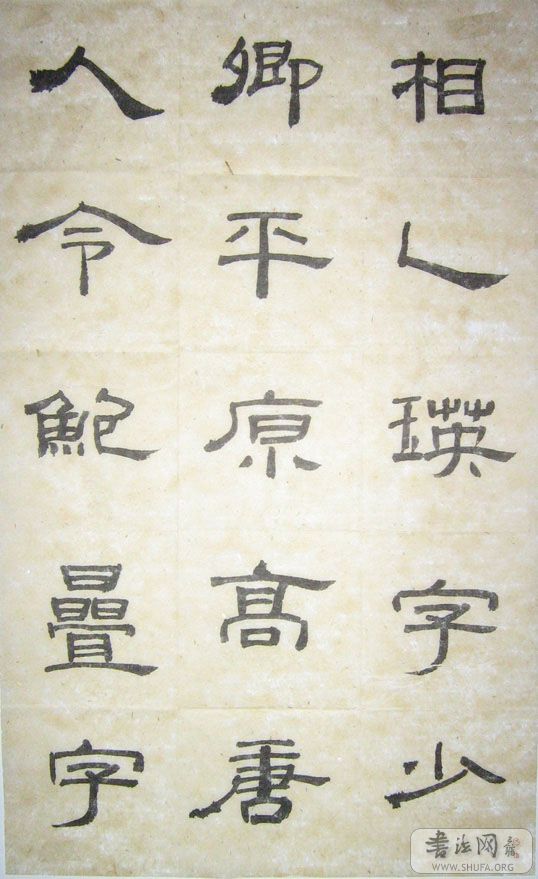 相乙瑛字少
卿平原高唐
人令鮑疊字
書法网
WWW.SHUFA.ORG